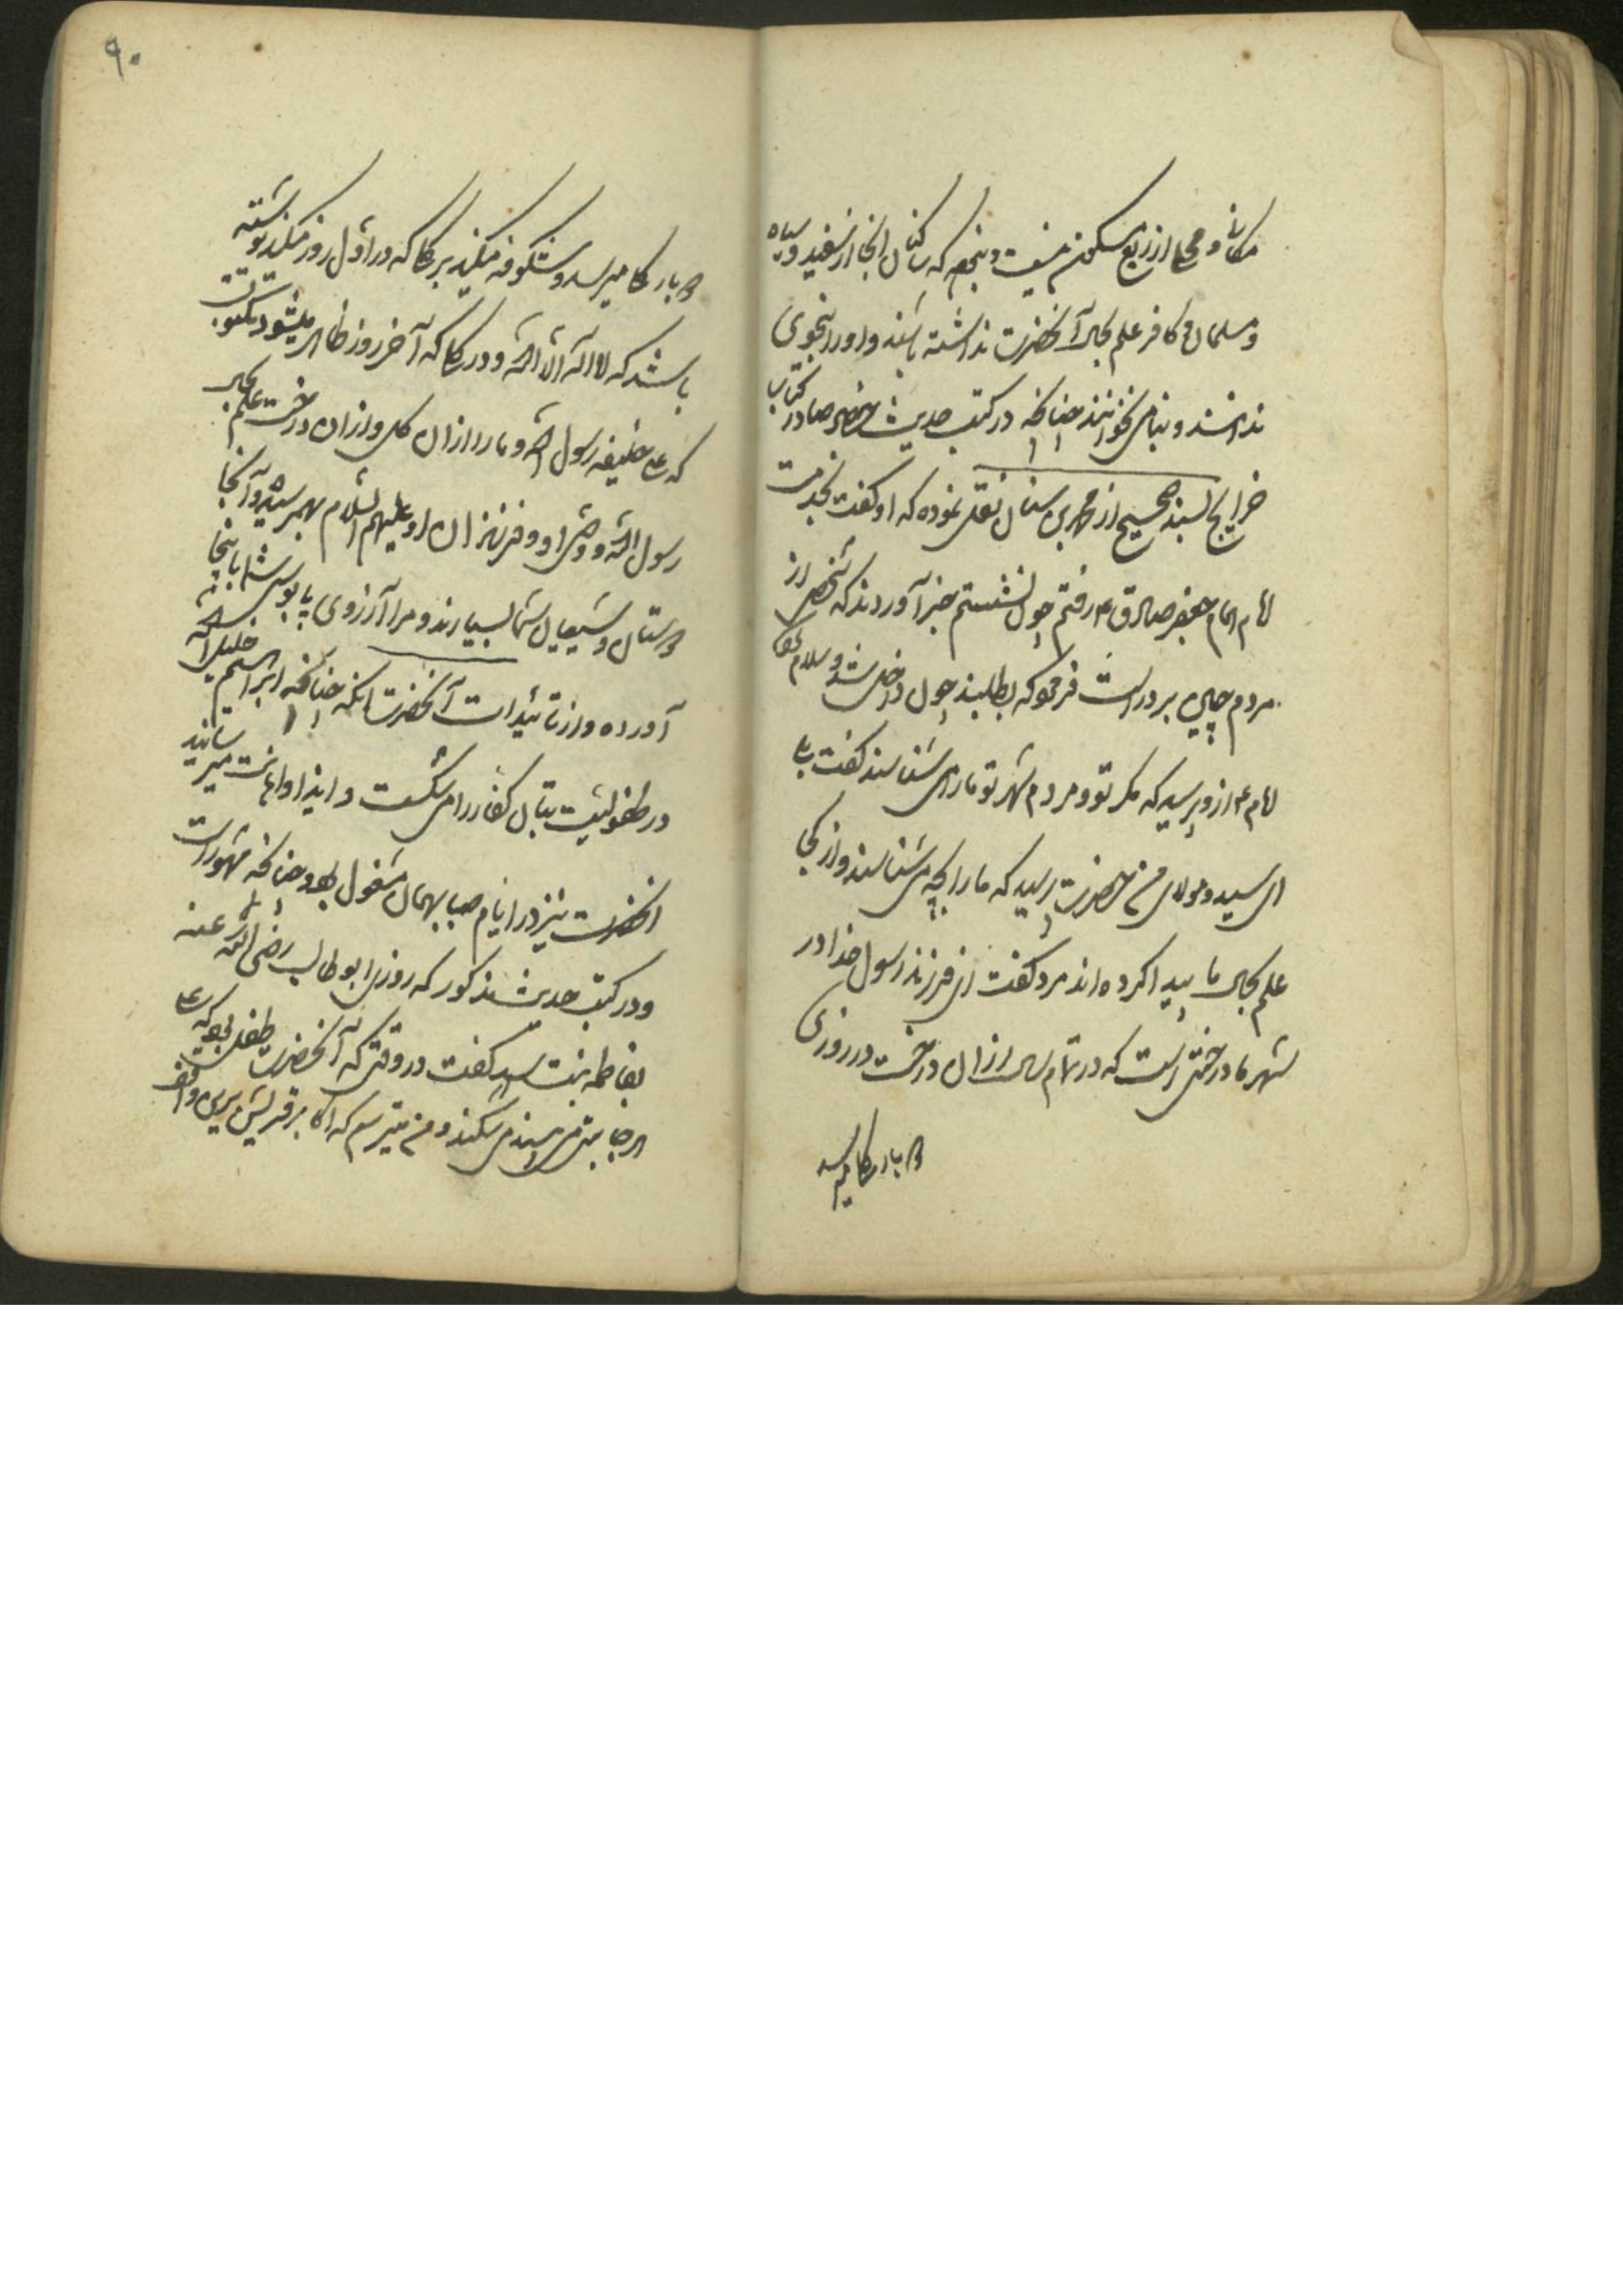 مکانی و محلی از ربع مسکون نیست و نبود که ساکنان آنجا از سفید و سیاه
و مسلمان و کافر علم بحال آنحضرت نداشته باشند و او را بخوبی
ندانسته و بنامی نخوانند چنانچه در کتب حدیث در کتاب
خرایج بسند صحیح از محمد بن سنان نقل نموده که او گفت بخدمت
امام امام جعفر صادق ع رفتم چون نشستم خبر آوردند که شخصی از
مردم چین بر در است فرمود که بطلبید چون داخل شد و سلام کرد
امام ع ازو پرسید که مکر تو و مردم شهر تو ما را می شناسند گفت بلی
ای سید و مولای من حضرت پرسید که ما را بچه می شناسند و از کجا
علم بحال ما پیدا کرده اند مرد گفت ای فرزند رسول خدا در
شهر ما درختی است که در تمام سال ازان درخت در روزی
دو بار گل میرسد
۹۰
دو بار گل میرسد و شکوفه میکند بر گلی که در اول روز میکند نوشته
باشد که لا اله الا الله و در گلی که آخر روز ظاهر میشود مکتوبست
که علی خلیفه رسول الله و ما را ازان گل و ازان درخت علم بحال
رسول الله و وصی او و فرزندان او علیهم السلام بهم رسیده و آنجا
دوستان و شیعیان شما بسیارند و مرا آرزوی پابوس شما باینجا
آورده و از تائیدات آنحضرت آنکه چنانچه ابراهیم خلیل الله
در طفولیت بتان کفار را می شکست و ایذا و اهانت میرسانید
آنحضرت نیز در ایام صبا بهمان مشغول بود چنانچه مشهور است
و در کتب حدیث مذکور که روزی ابو طالب رضی الله عنه
بفاطمه بنت اسد گفت در وقتی که آنحضرت طفل بود که علی
هر جا بتی می بیند می شکند و من میترسم که اکابر قریش برین واقف